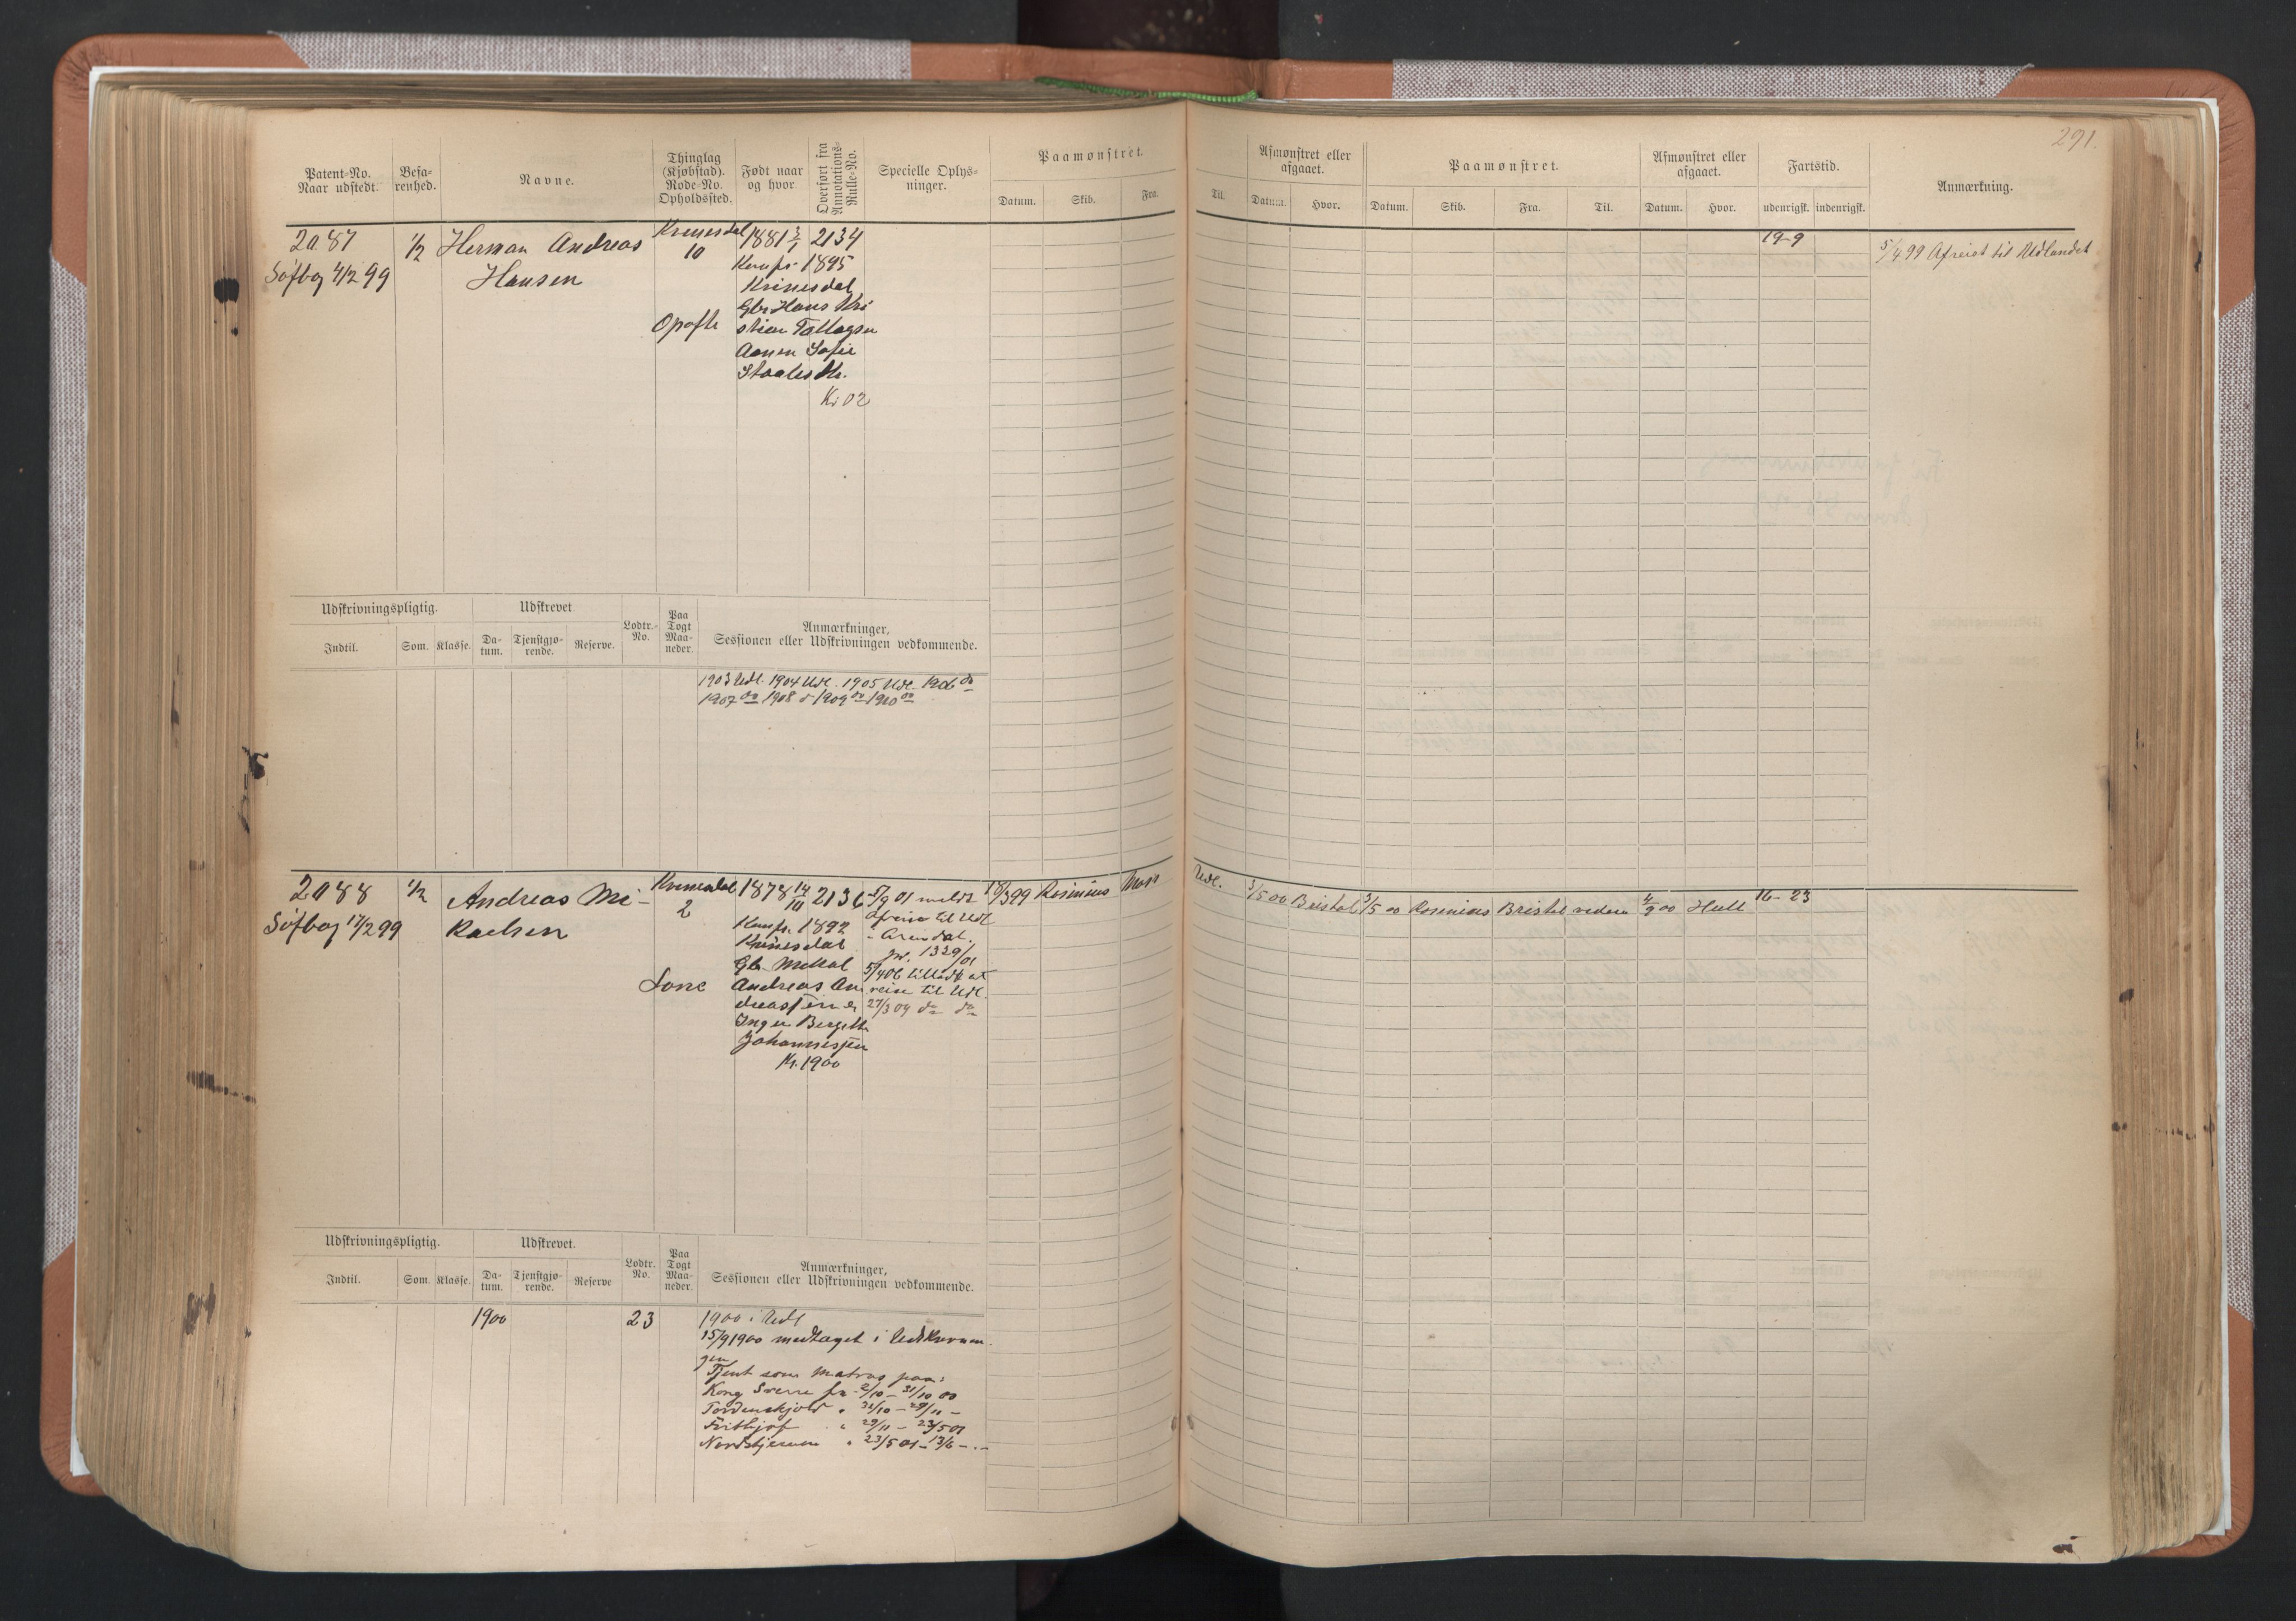 291.
Patent-No.
Naar udstedt.
Befa-
renhed.
Navne.
Thinglag
(Kjøbstad).
Rode-No.
Opholdssted.
Født naar
og hvor
Overført fra
Annotations-
Rulle-No.
Specielle Oplys-
ninger.
Paamønstret.
Datum. Skib. Fra.
Til.
Afmønstret eller
afgaaet.
Datum. Hvor.
Paamønstret.
Datum. Skib. Fra. Til.
Afmønstret eller
afgaaet.
Datum. Hvor.
Fartstid.
udenrigsk. indenrigsk.
Anmærkning.
2087
Søfbog 4/2 99
1/2
Herman Andreas
Hansen
10
1881 3/1 2134
1895
Kvinesdal
Gbr Hans Kri
stian
Sofie
Kr 02
19-9
5/4 99 Afreist til Udlandet
Udskrivningspligtig.
Udskrevet
Indtil. Som. Klasse. Da-
tum. Tjenstgjø-
rende. Reserve.
Lodtr.-
No.
Paa
Togt
Maa-
neder.
Anmærkninger,
Sessionen eller Udskrivningen vedkommende.
1903 Udl. 1904 Udl. 1905 Udl. 1906 do
1907 do 1908 do 1909 do 1910 do
2088
Søfbog 17/2 99
1/2
Andreas Mi-
kaelsen
Kvinesdal
2
1878 14/10 2136
1892
Kvinesdal
Gbr Mikal
Andreas An
dreassen &
Inger Bergitte
Johannessen
Kr. 1900
5/9 01 meldt
afreise til Udl.
- Arendal.
jr. 1339/01
5/4 06 tilladt at
reise til Udl.
27/3 09 do do
18/3 99 Rosenius Moss
Udl.
3/5 00 Bristol 3/5 00 Rosenius Bristol videre 4/9 00 Hull 16-23
Udskrivningspligtig.
Udskrevet.
Indtil. Som. Klasse. Da-
tum. Tjenstgjø-
rende. Reserve
Lodtr.
No.
Paa
Togt
Maa-
neder.
Anmærkninger,
Sessionen eller Udskrivningen vedkommende.
1900
23
1900 i Udl
15/9 1900 medtaget i Udskrivnin-
gen
Tjent som Matros paa:
Kong Sverre fra 2/10 - 31/10 00
Tordenskjold " 31/10 - 29/11 -
Frithjof " 29/11 - 23/5 01
Nordstjernen " 23/5 01 - 13/6 -